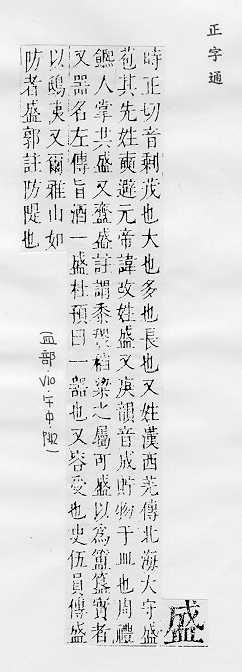 正字通
盛
時正切音剩茂也大也多也長也又姓漢西羌傳北海大守盛
苞其先姓奭避元帝諱改姓盛又庚韻音成貯物于皿也周禮
饎人掌共盛又齍盛註謂黍稷稻粱之屬可盛以爲簠簋實者
又器名左傳旨酒一盛杜預曰一器也又容受也史伍員傳盛
以鴟夷又爾雅山如
防者盛郭註防隄也
(皿部·V10·午中·